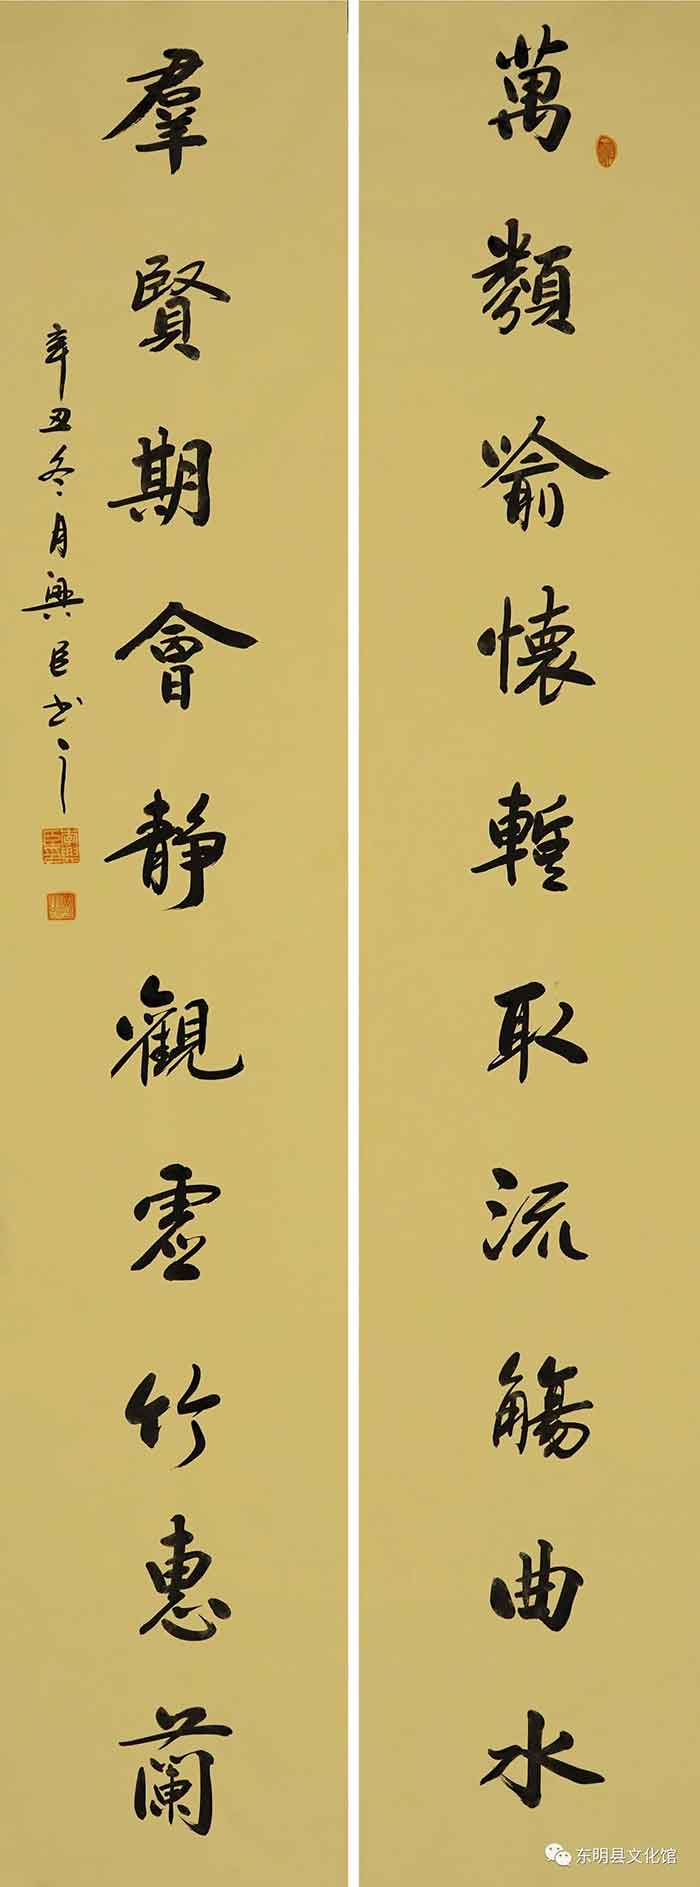 萬類喻懷暫取流觴曲水
羣賢期會静觀虛竹惠蘭
辛丑冬月興臣书之
东明县文化馆